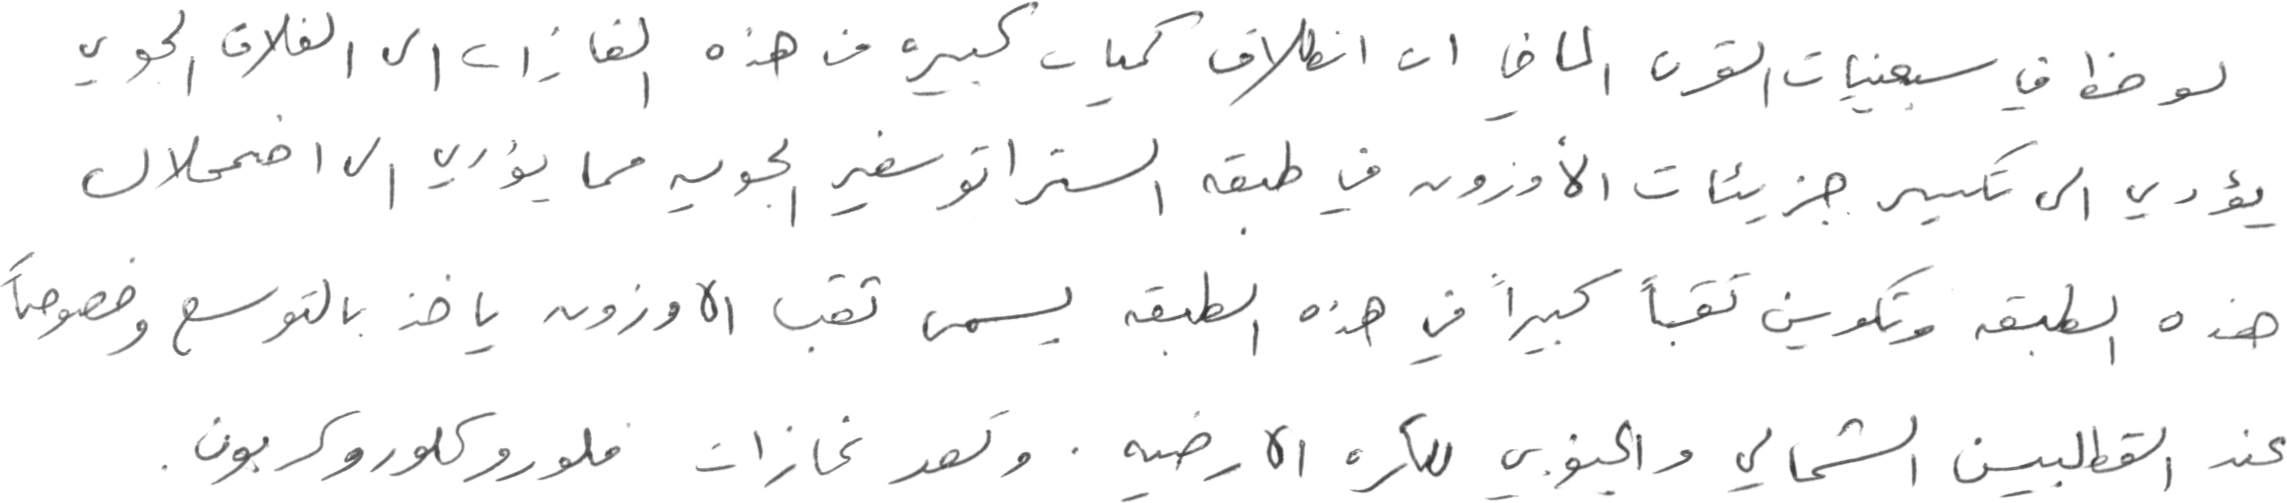 لوحظ في سبعينيات القرن الماضي ان انطلاق كميات كبيره من هذه الغازات الى الغلاف الجوي
يؤدي الى تكسير جزيئات الأوزون في طبقه الستراتوسفير الجويه مما يؤدي الى اضمحلال
هذه الطبقه وتكوين ثقباً كبيراً في هذه الطبقه يسمى ثقب الاوزون ياخذ بالتوسع وخصوصاً
عند القطبين الشمالي والجنوبي للكره الارضيه . وتعد غازات فلوروكلوروكربون .